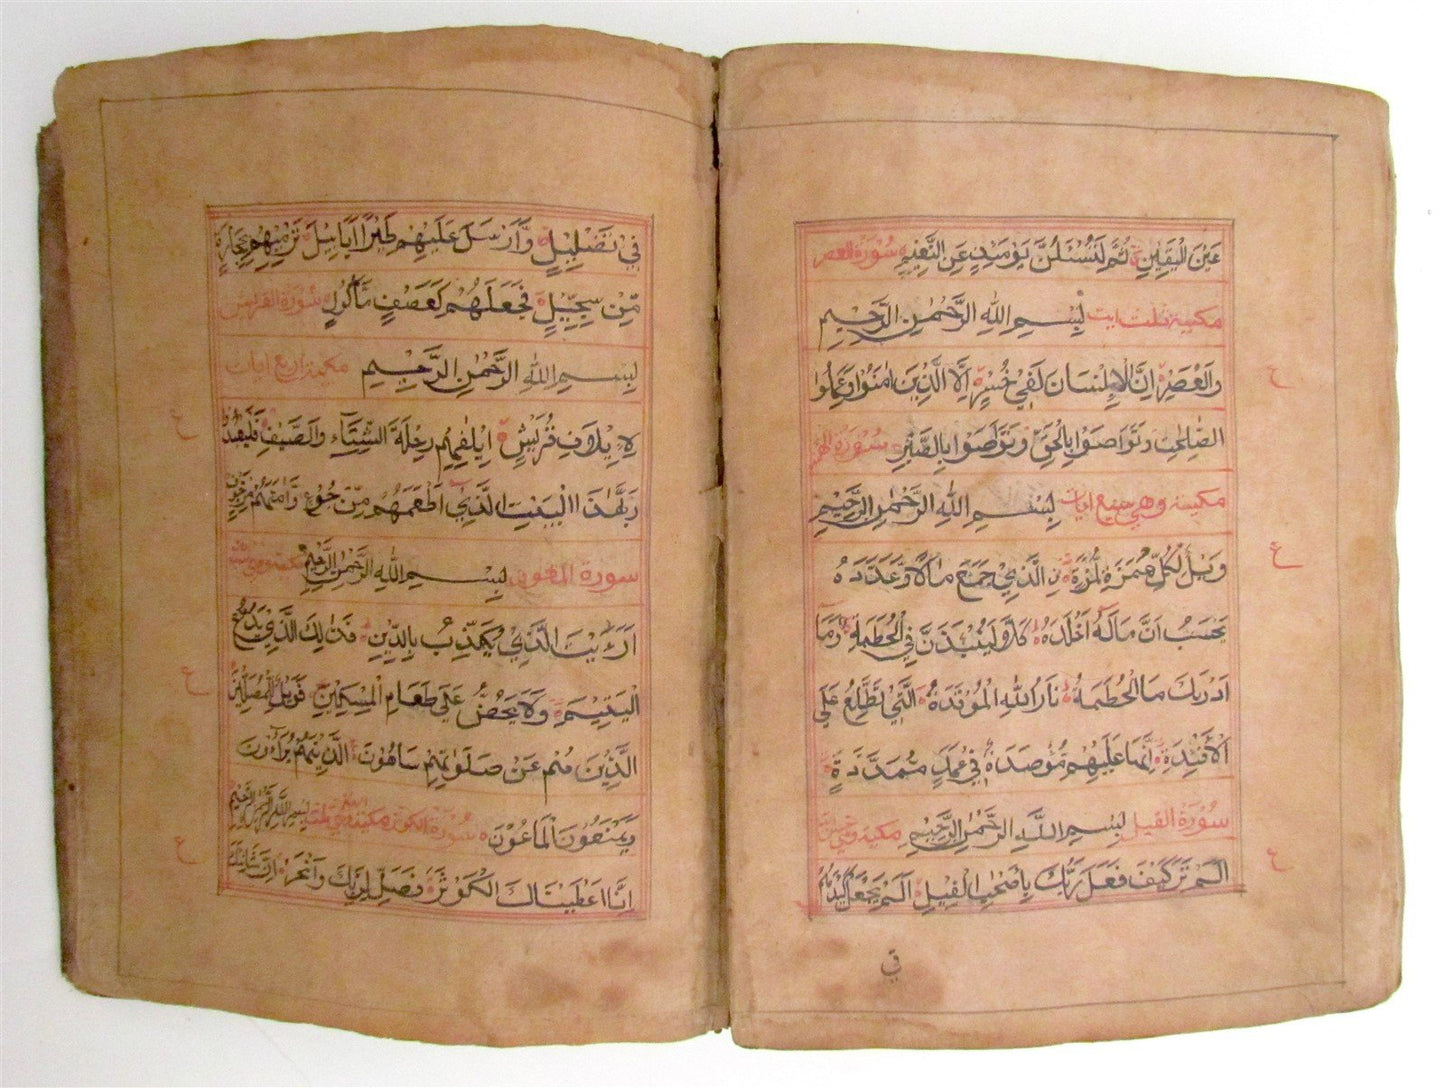 عَيْنَ الْيَقِيْنِ ثُمَّ لَتُسْئَلُنَّ يَوْمَئِذٍ عَنِ النَّعِيْمِ سُوْرَةُ العصر
مكيية ثلث ايت بِسْمِ اللهِ الرَّحْمٰنِ الرَّحِيْمِ
وَالْعَصْرِ اِنَّ الْاِنْسَانَ لَفِيْ خُسْرٍ اِلَّا الَّذِيْنَ اٰمَنُوْا وَعَمِلُوا
الصّٰلِحٰتِ وَتَوَاصَوْا بِالْحَقِّ وَتَوَاصَوْا بِالصَّبْرِ سُوْرَةُ
مكيية وهي ايات بِسْمِ اللهِ الرَّحْمٰنِ الرَّحِيْمِ
وَيْلٌ لِكُلِّ هُمَزَةٍ لُمَزَةٍ نِ الَّذِيْ جَمَعَ مَالًا وَّعَدَّدَهٗ
يَحْسَبُ اَنَّ مَالَهٗ اَخْلَدَهٗ كَلَّا لَيُنْبَذَنَّ فِي الْحُطَمَةِ وَمَآ
اَدْرٰىكَ مَا الْحُطَمَةُ نَارُ اللهِ الْمُوْقَدَةُ الَّتِيْ تَطَّلِعُ عَلَى
الْاَفْـِٕدَةِ اِنَّهَا عَلَيْهِمْ مُّؤْصَدَةٌ فِيْ عَمَدٍ مُمَدَّدَةٍ
سُوْرَةُ الفيل بِسْمِ اللهِ الرَّحْمٰنِ الرَّحِيْمِ مكية وهي
اَلَمْ تَرَ كَيْفَ فَعَلَ رَبُّكَ بِاَصْحٰبِ الْفِيْلِ اَلَمْ يَجْعَلْ كَيْدَهُمْ
في
فِيْ تَضْلِيْلٍ وَّاَرْسَلَ عَلَيْهِمْ طَيْرًا اَبَابِيْلَ تَرْمِيْهِمْ بِحِجَارَةٍ
مِّنْ سِجِّيْلٍ فَجَعَلَهُمْ كَعَصْفٍ مَّاْكُوْلٍ سُوْرَةُ القريش
بِسْمِ اللهِ الرَّحْمٰنِ الرَّحِيْمِ مكية اربع ايات
لِاِيْلٰفِ قُرَيْشٍ اٖلٰفِهِمْ رِحْلَةَ الشِّتَآءِ وَالصَّيْفِ فَلْيَعْبُدُوْا
رَبَّ هٰذَا الْبَيْتِ الَّذِيْ اَطْعَمَهُمْ مِّنْ جُوْعٍ وَّاٰمَنَهُمْ مِّنْ خَوْفٍ
سورة المعون بِسْمِ اللهِ الرَّحْمٰنِ الرَّحِيْمِ مكية وهي
اَرَءَيْتَ الَّذِيْ يُكَذِّبُ بِالدِّيْنِ فَذٰلِكَ الَّذِيْ يَدُعُّ
الْيَتِيْمَ وَلَا يَحُضُّ عَلٰى طَعَامِ الْمِسْكِيْنِ فَوَيْلٌ لِّلْمُصَلِّيْنَ
الَّذِيْنَ هُمْ عَنْ صَلَوٰتِهِمْ سَاهُوْنَ الَّذِيْنَ هُمْ يُرَآءُوْنَ
وَيَمْنَعُوْنَ الْمَاعُوْنَ سُوْرَةُ الكوثر مكية وهي ثلثة بِسْمِ اللهِ الرَّحْمٰنِ الرَّحِيْمِ
اِنَّا اَعْطَيْنَاكَ الْكَوْثَرَ فَصَلِّ لِرَبِّكَ وَانْحَرْ اِنَّ شَانِئَكَ